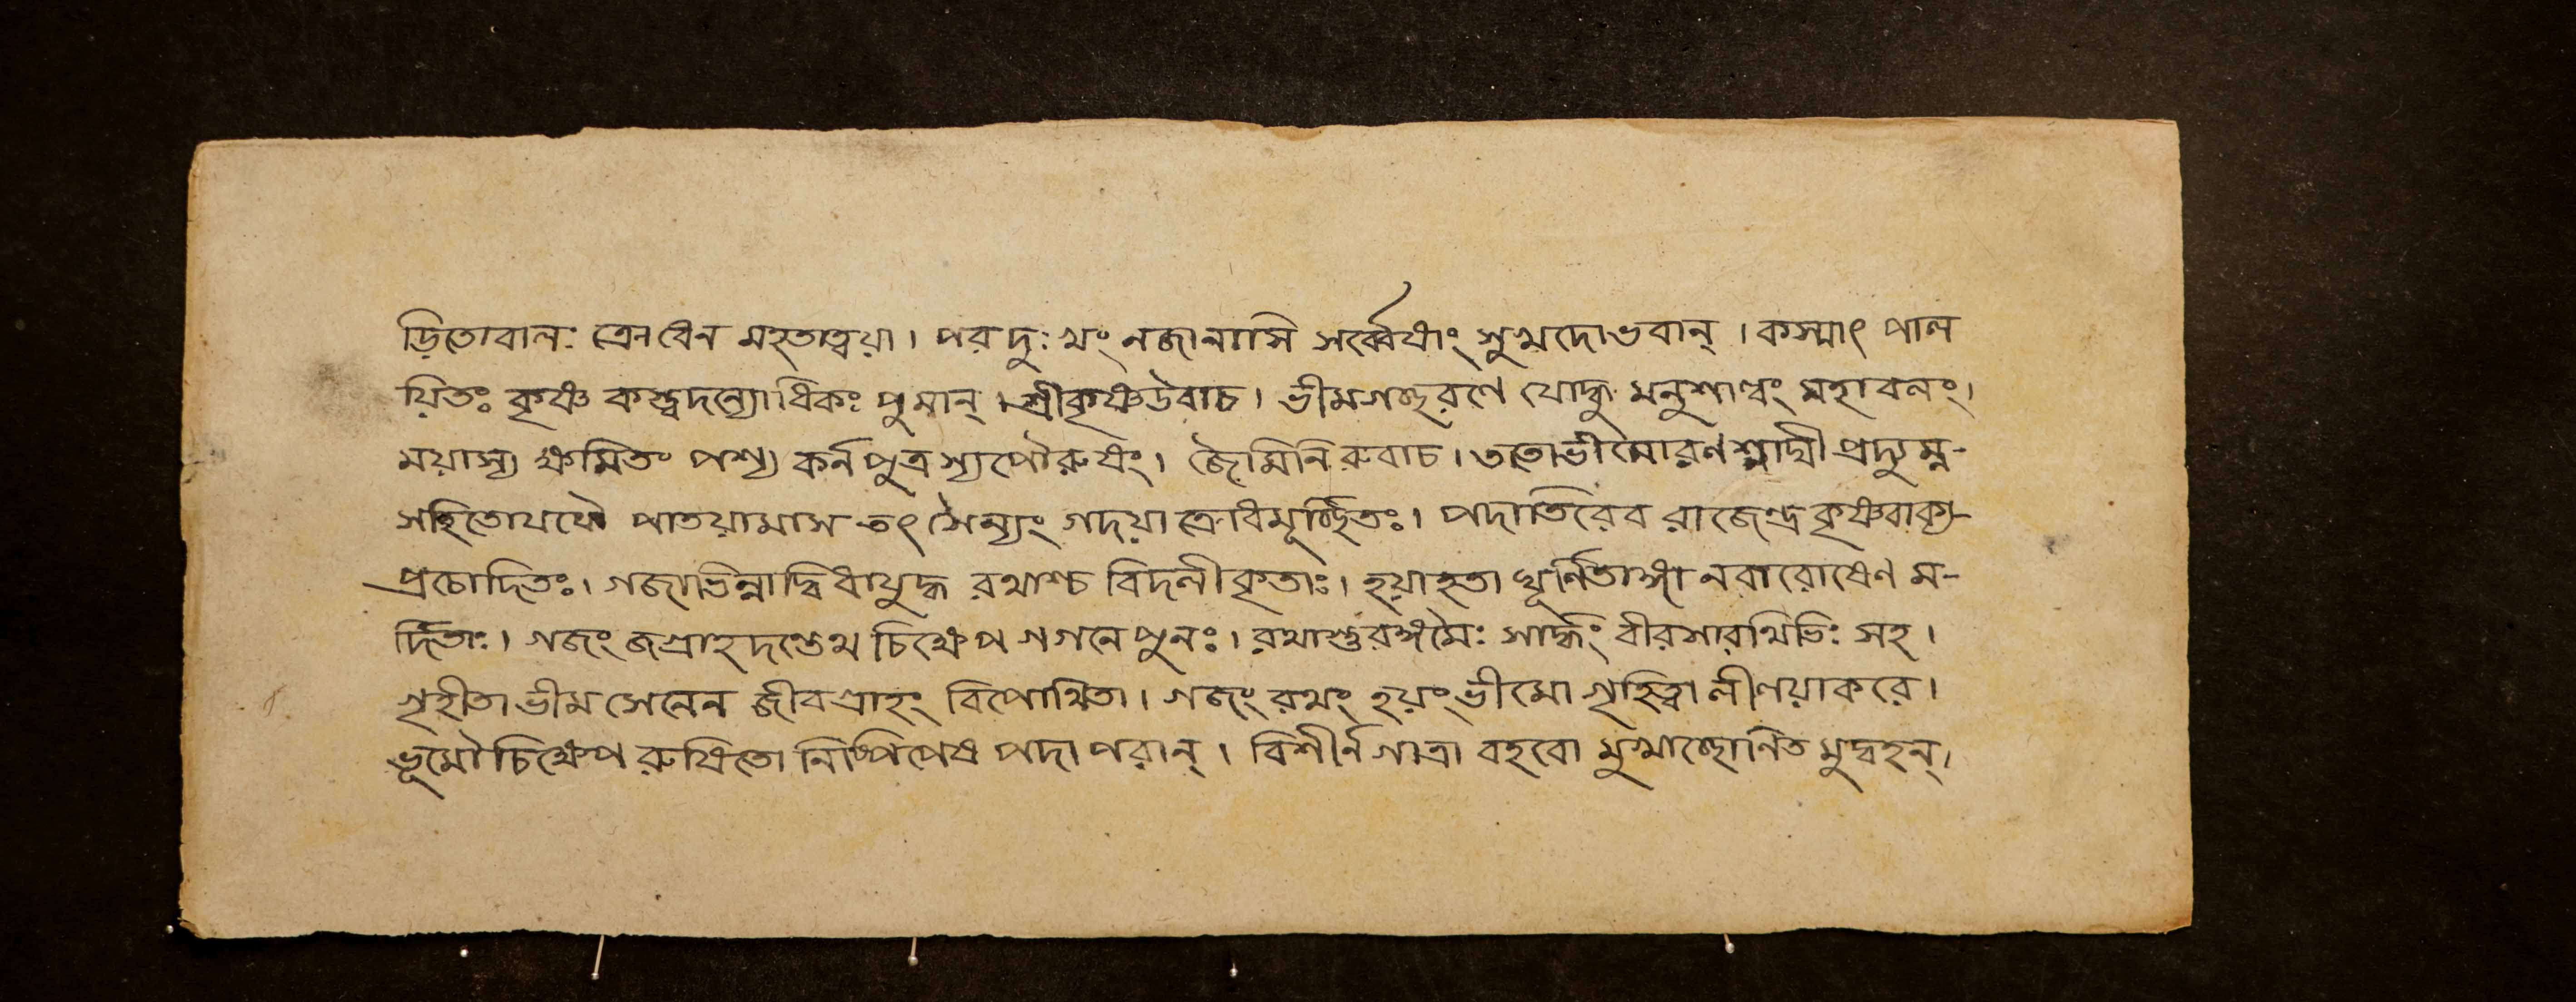 ড়িতোবালঃ ক্রোধেন মহতাত্বয়া। পরদুঃখং নজানাসি সর্ব্বেষাং সুখদোভবান্। কস্মাৎ পাল
য়িতঃ কৃষ্ণ কস্ত্বদন্যোধিকঃ পুমান্। শ্রীকৃষ্ণউবাচ। ভীমগচ্ছরণে যোদ্ধু মনুশাল্বং মহাবলং।
ময়াস্য ক্ষমিতং পশ্য কর্নপুত্রস্যপৌরুষং। জৈমিনিরুবাচ। ততোভীমোরণশ্লাঘী প্রদ্যুম্ন-
সহিতোযযৌ পাতয়ামাস তৎ সৈন্যং গদয়া ক্রোধমূর্চ্ছিতঃ। পদাতিরেব রাজেন্দ্র কৃষ্ণবাক্য-
প্রচোদিতঃ। গজাভিন্নাদ্বিধাযুদ্ধ রথাশ্চ বিদলীকৃতাঃ। হয়াহতা ঘূর্ণিতাঙ্গা নরারোষেণ ম-
র্দিতাঃ। গজং জগ্রাহ দন্তেথ চিক্ষেপ গগনে পুনঃ। রথাস্তুরঙ্গমৈঃ সার্দ্ধং বীরসারথিভিঃ সহ।
গৃহীতা ভীমসেনেন জীবগ্রাহং বিপোথিতা। গজং রথং হয়ং ভীমো গৃহিত্বা লীলয়াকরে।
ভূমৌ চিক্ষেপ রুষিতো নিষ্পিপেষ পদাপরান্। বিশীর্নগাত্রা বহবো মুখাচ্ছোনিত মুদ্বহন্।